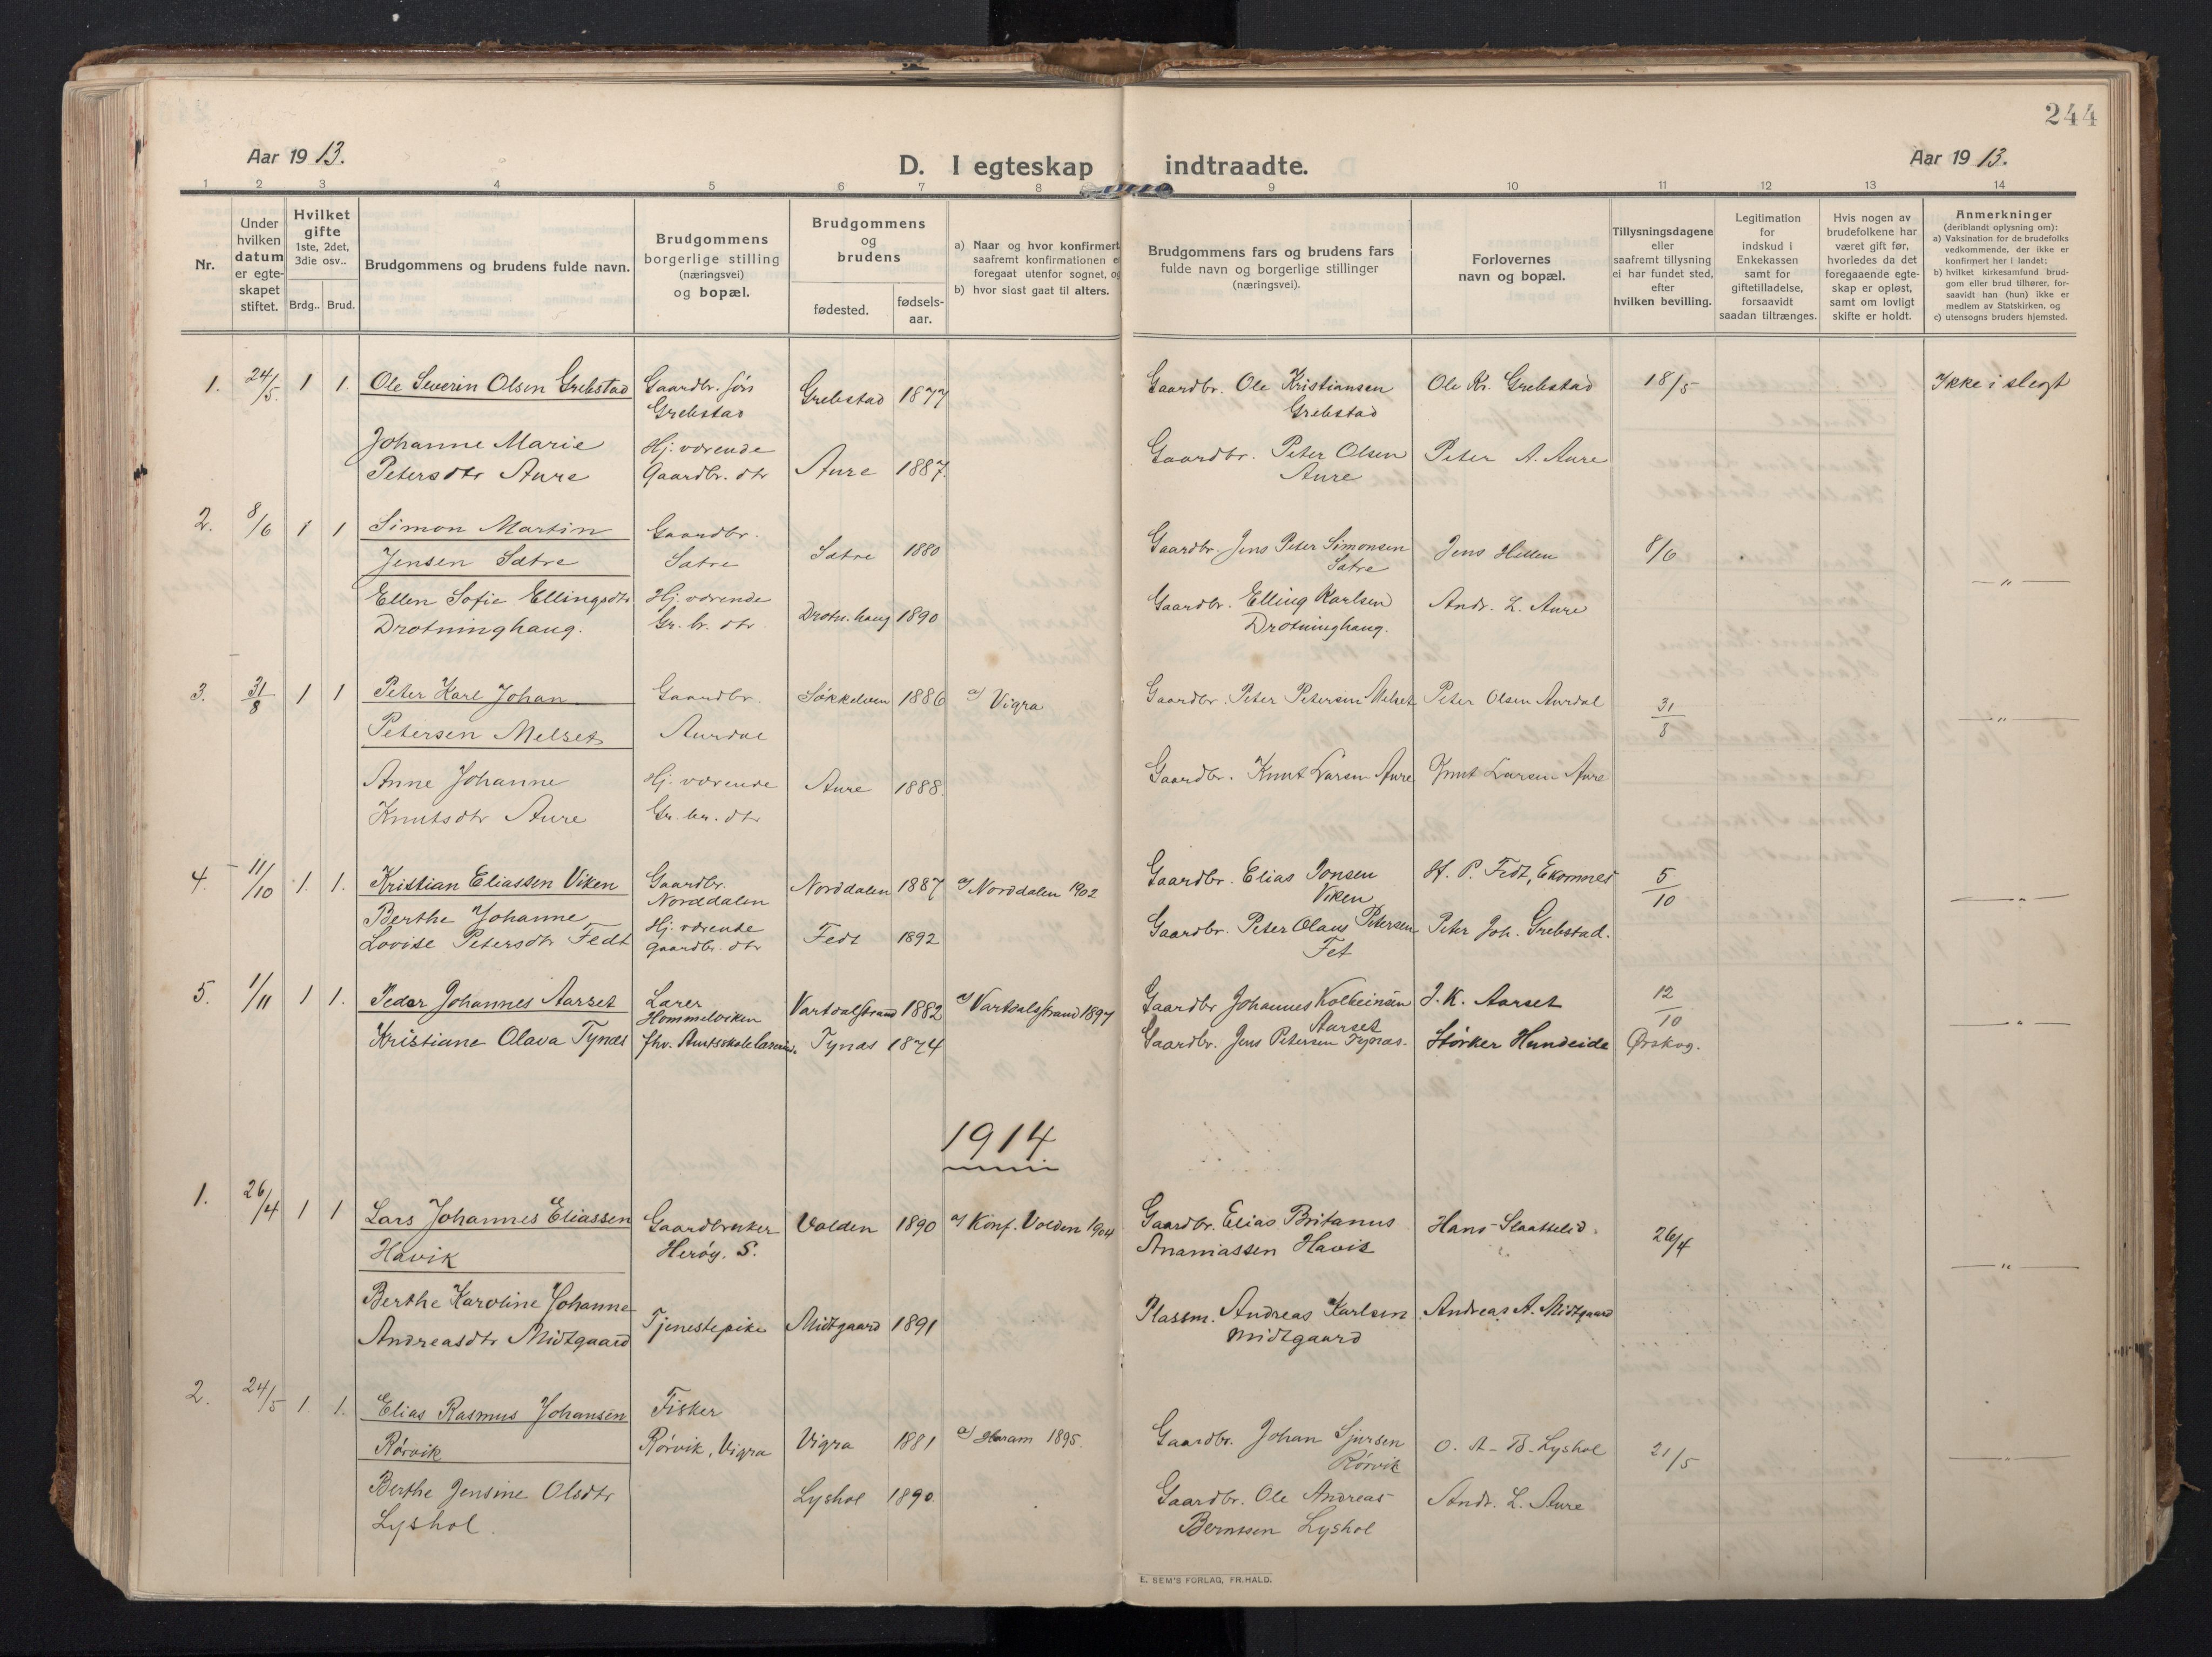 244
Aar 1913.
D. I egteskap indtraadte.
Aar 1913.
1 2 3 4 5 6 7 8 9 10 11 12 13 14
Nr.
Under
hvilken
datum
er egte-
skapet
stiftet.
Hvilket
gifte
1ste, 2det,
3die osv..
Brdg.. Brud.
Brudgommens og brudens fulde navn.
Brudgommens
borgerlige stilling
(næringsvei)
og bopæl.
Brudgommens
og
brudens
fødested.
fødsels-
aar.
a) Naar og hvor konfirmert
saafremt konfirmationen e
foregaat utenfor sognet, og
b) hvor sidst gaat til alters.
Brudgommens fars og brudens fars
fulde navn og borgerlige stillinger
(næringsvei).
Forlovernes
navn og bopæl.
Tillysningsdagene
eller
saafremt tillysning
ei har fundet sted,
efter
hvilken bevilling.
Legitimation
for
indskud i
Enkekassen
samt for
giftetilladelse,
forsaavidt
saadan tiltrænges.
Hvis nogen av
brudefolkene har
været gift før,
hvorledes da det
foregaaende egte-
skap er opløst,
samt om lovligt
skifte er holdt.
Anmerkninger
(deriblandt oplysning om):
a) Vaksination for de brudefolks
vedkommende, der ikke er
konfirmert her i landet;
b) hvilket kirkesamfund brud-
gom eller brud tilhører, for-
saavidt han (hun) ikke er
medlem av Statskirken, og
c) utensogns bruders hjemsted.
1. 24/5. 1 1. Ole Severin Olsen Grebstad Gaardbr. søn Grebstad 1877 Gaardbr. Ole Kristiansen Ole Kr. Grebstad 18/5 Ikke i slegt
Grebstad Grebstad
Johanne Marie Hj. værende Gaardbr. Peter Olsen Peter A. Aure
Petersdtr Aure Gaardbr. dtr Aure 1887. Aure
2. 8/6 1 1 Simon Martin Gaardbr.
Jensen Sætre Sætre Sætre 1880 Gaardbr. Jens Peter Simonsen Jens Hellen 8/6
Sætre
Ellen Sofie Ellingsdtr Hj. værende Drotn. haug 1890 Gaardbr. Elling Karlsen Andr. L. Aure — " —
Drotninghaug. Gr. br. dtr Drotninghaug.
3. 31/8 1 1 Peter Karl Johan Gaardbr. Søkkelven 1886 a/ Vigra Gaardbr. Peter Petersen Melset Peter Olsen Aurdal 31/8 — " —
Petersen Melset Aurdal
Anne Johanne Hj. værende Aure 1888. Gaardbr. Knut Larsen Aure Knut Larsen Aure
Knutsdtr Aure Gr. br. dtr
4. 11/10 1. 1. Kristian Eliassen Viken Gaardbr. Norddalen 1887 a/ Norddalen 1902 Gaardbr. Elias Jonsen H. P. Fedt, Ekornnes 5/10 — " —
Norddalen Viken
Berthe Johanne Hj. værende Gaardbr. Peter Olaus Petersen Peter Joh. Grebstad.
Lovise Petersdtr Fedt gaardbr. dtr Fedt 1892 Fet
5. 1/11 1 1. Peder Johannes Aarset Lærer Vartdalstrand 1882 a/ Vartdalstrand 1897 Gaardbr Johannes Kolbeinsen J. K. Aarset 12/10 — " —
Hommelviken Aarset
Kristiane Olava Tynæs fhv. Amtsskolelærerinde Tynæs 1874 Gaardbr. Jens Petersen Tynæs. Størker Hundeide Ørskog.
1914
1. 26/4 1 1 Lars Johannes Eliassen Gaardbruker Volden 1890 a/ Konf. Volden 1904 Gaardbr. Elias Britanus Hans Slaattelid. 26/4
Havik Herøy. S. Ananiassen Havik — " —
Berthe Karoline Johanne Tjenestepike Midtgaard 1891 Plassm. Andreas Karlsen Andreas A. Midtgaard
Andreasdtr Midtgaard Midtgaard
2. 24/5 1. 1. Elias Rasmus Johansen Fisker
Rørvik Rørvik, Vigra Vigra 1881 a/ Haram 1895. Gaardbr. Johan Sjursen O. A. B. Lyshol 21/5 — " —
Rørvik
Berthe Jensine Olsdtr Lyshol 1890. Gaardbr. Ole Andreas Andr. L. Aure
Lyshol. Berntsen Lyshol
E. SEM'S FORLAG, FR.HALD.